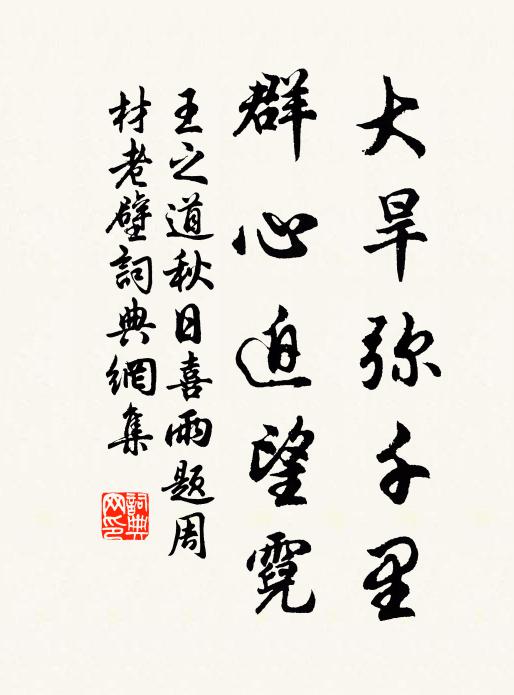 大旱弥千里
群心迫望霓
王之道秋日喜雨题周
材老壁词典網集
詞典網印